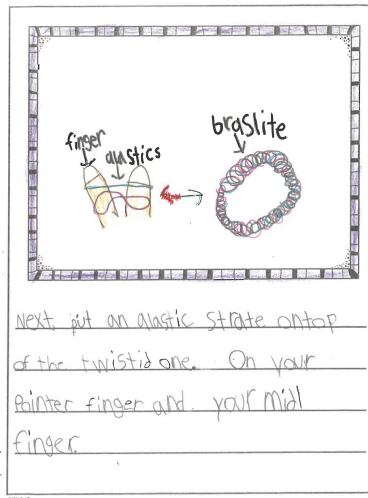 finger
alastics
braslite
Next put an alastic strate ontop
of the twistid one. On your
Pointer finger and your midl
finger.